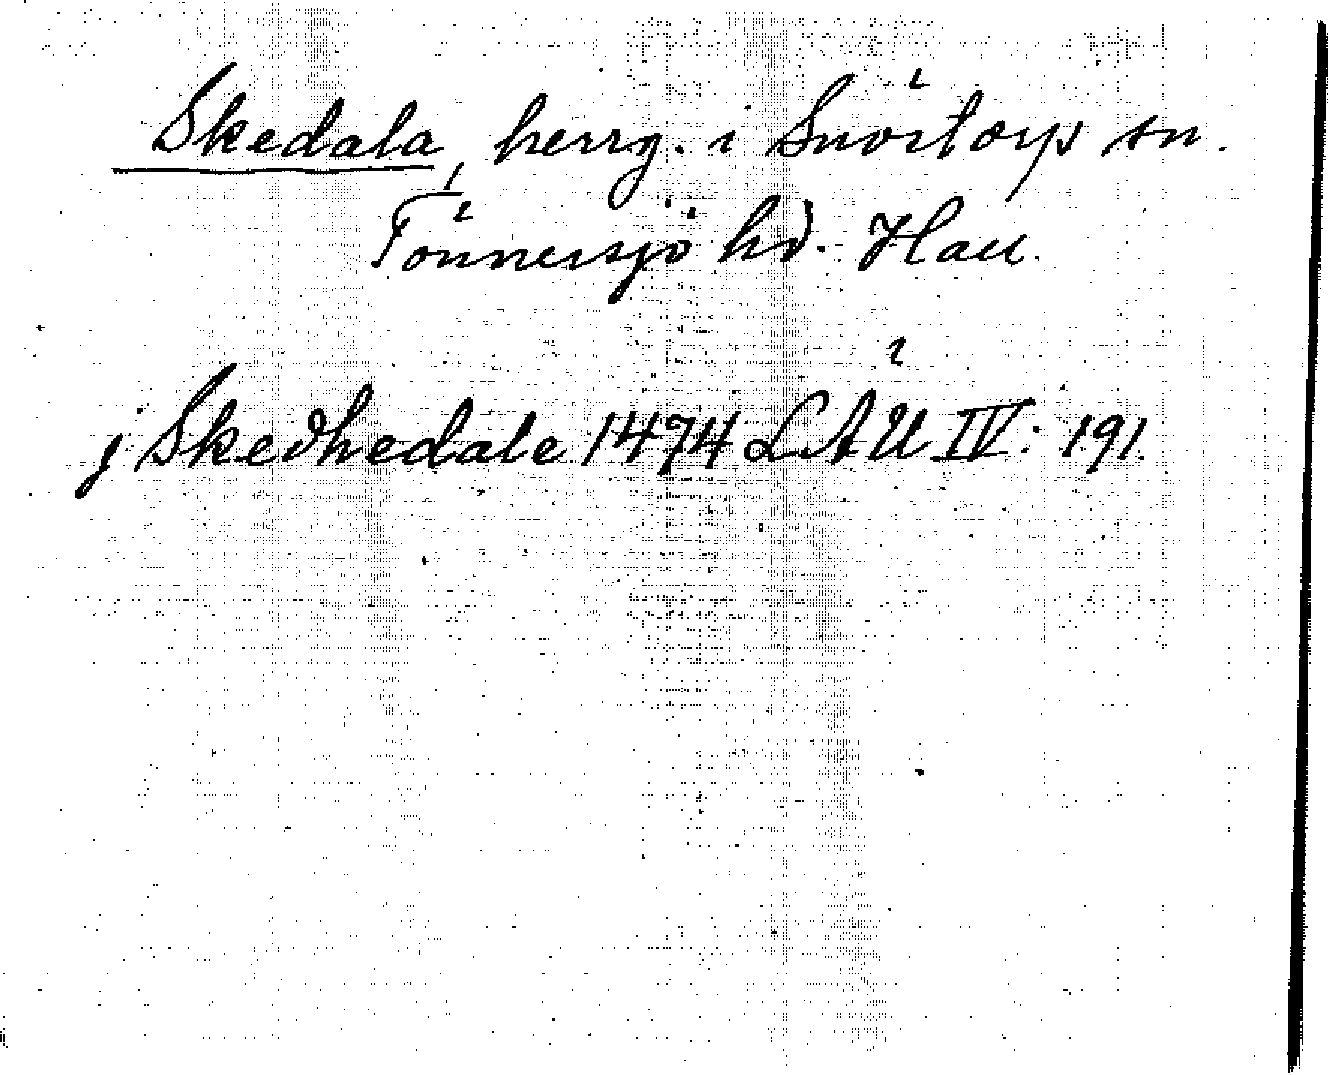 Skedala, herrg. i Snöstorp sn.
Tönnersjö hd. Hall.
j Skedhedale 1474 LÄU IV: 191.